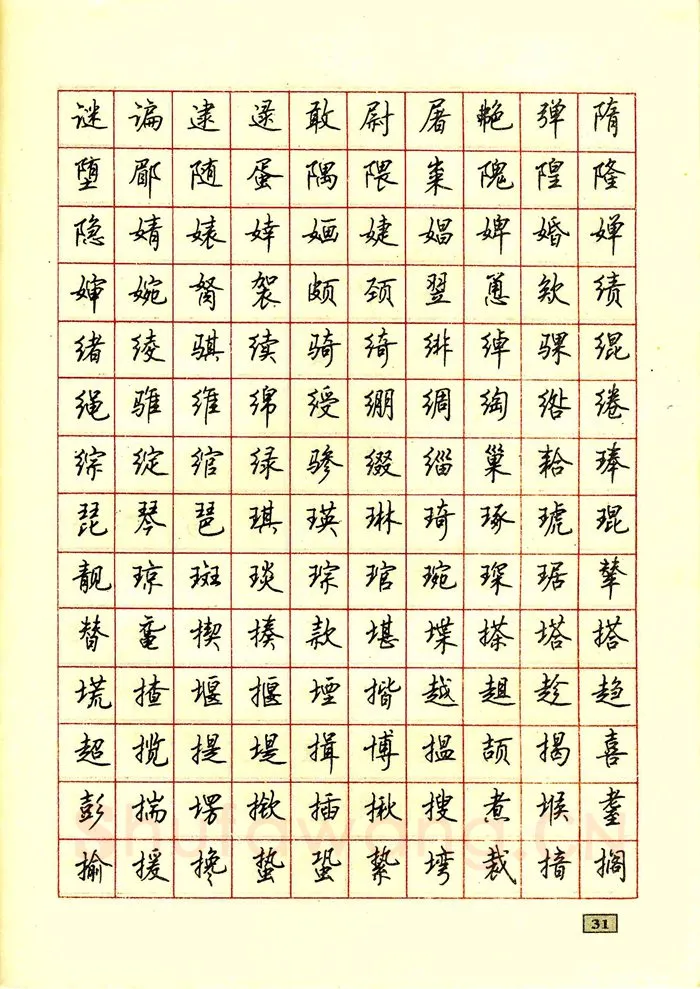 谜谝逮逯敢尉屠艴弹隋
堕郿随蛋隅隈粜隗隍隆
隐婧婊婞婳婕娼婢婚婵
婶婉胬袈颇颈翌恿欸绩
绪绫骐续骑绮绯绰骒绲
绳骓维绵绶绷绸绹绺绻
综绽绾绿骖缀缁巢耠琫
琵琴琶琪瑛琳琦琢琥琨
靓琼斑琰琮琯琬琛琚辇
替鼋揳揍款堪堞搽塔搭
塃揸堰揠堙揩越趄趁趋
超揽提堤揖博揾颉揭喜
彭揣塄揿插揪搜煮堠耋
揄援搀蛰蛩絷塆裁揞搁
31